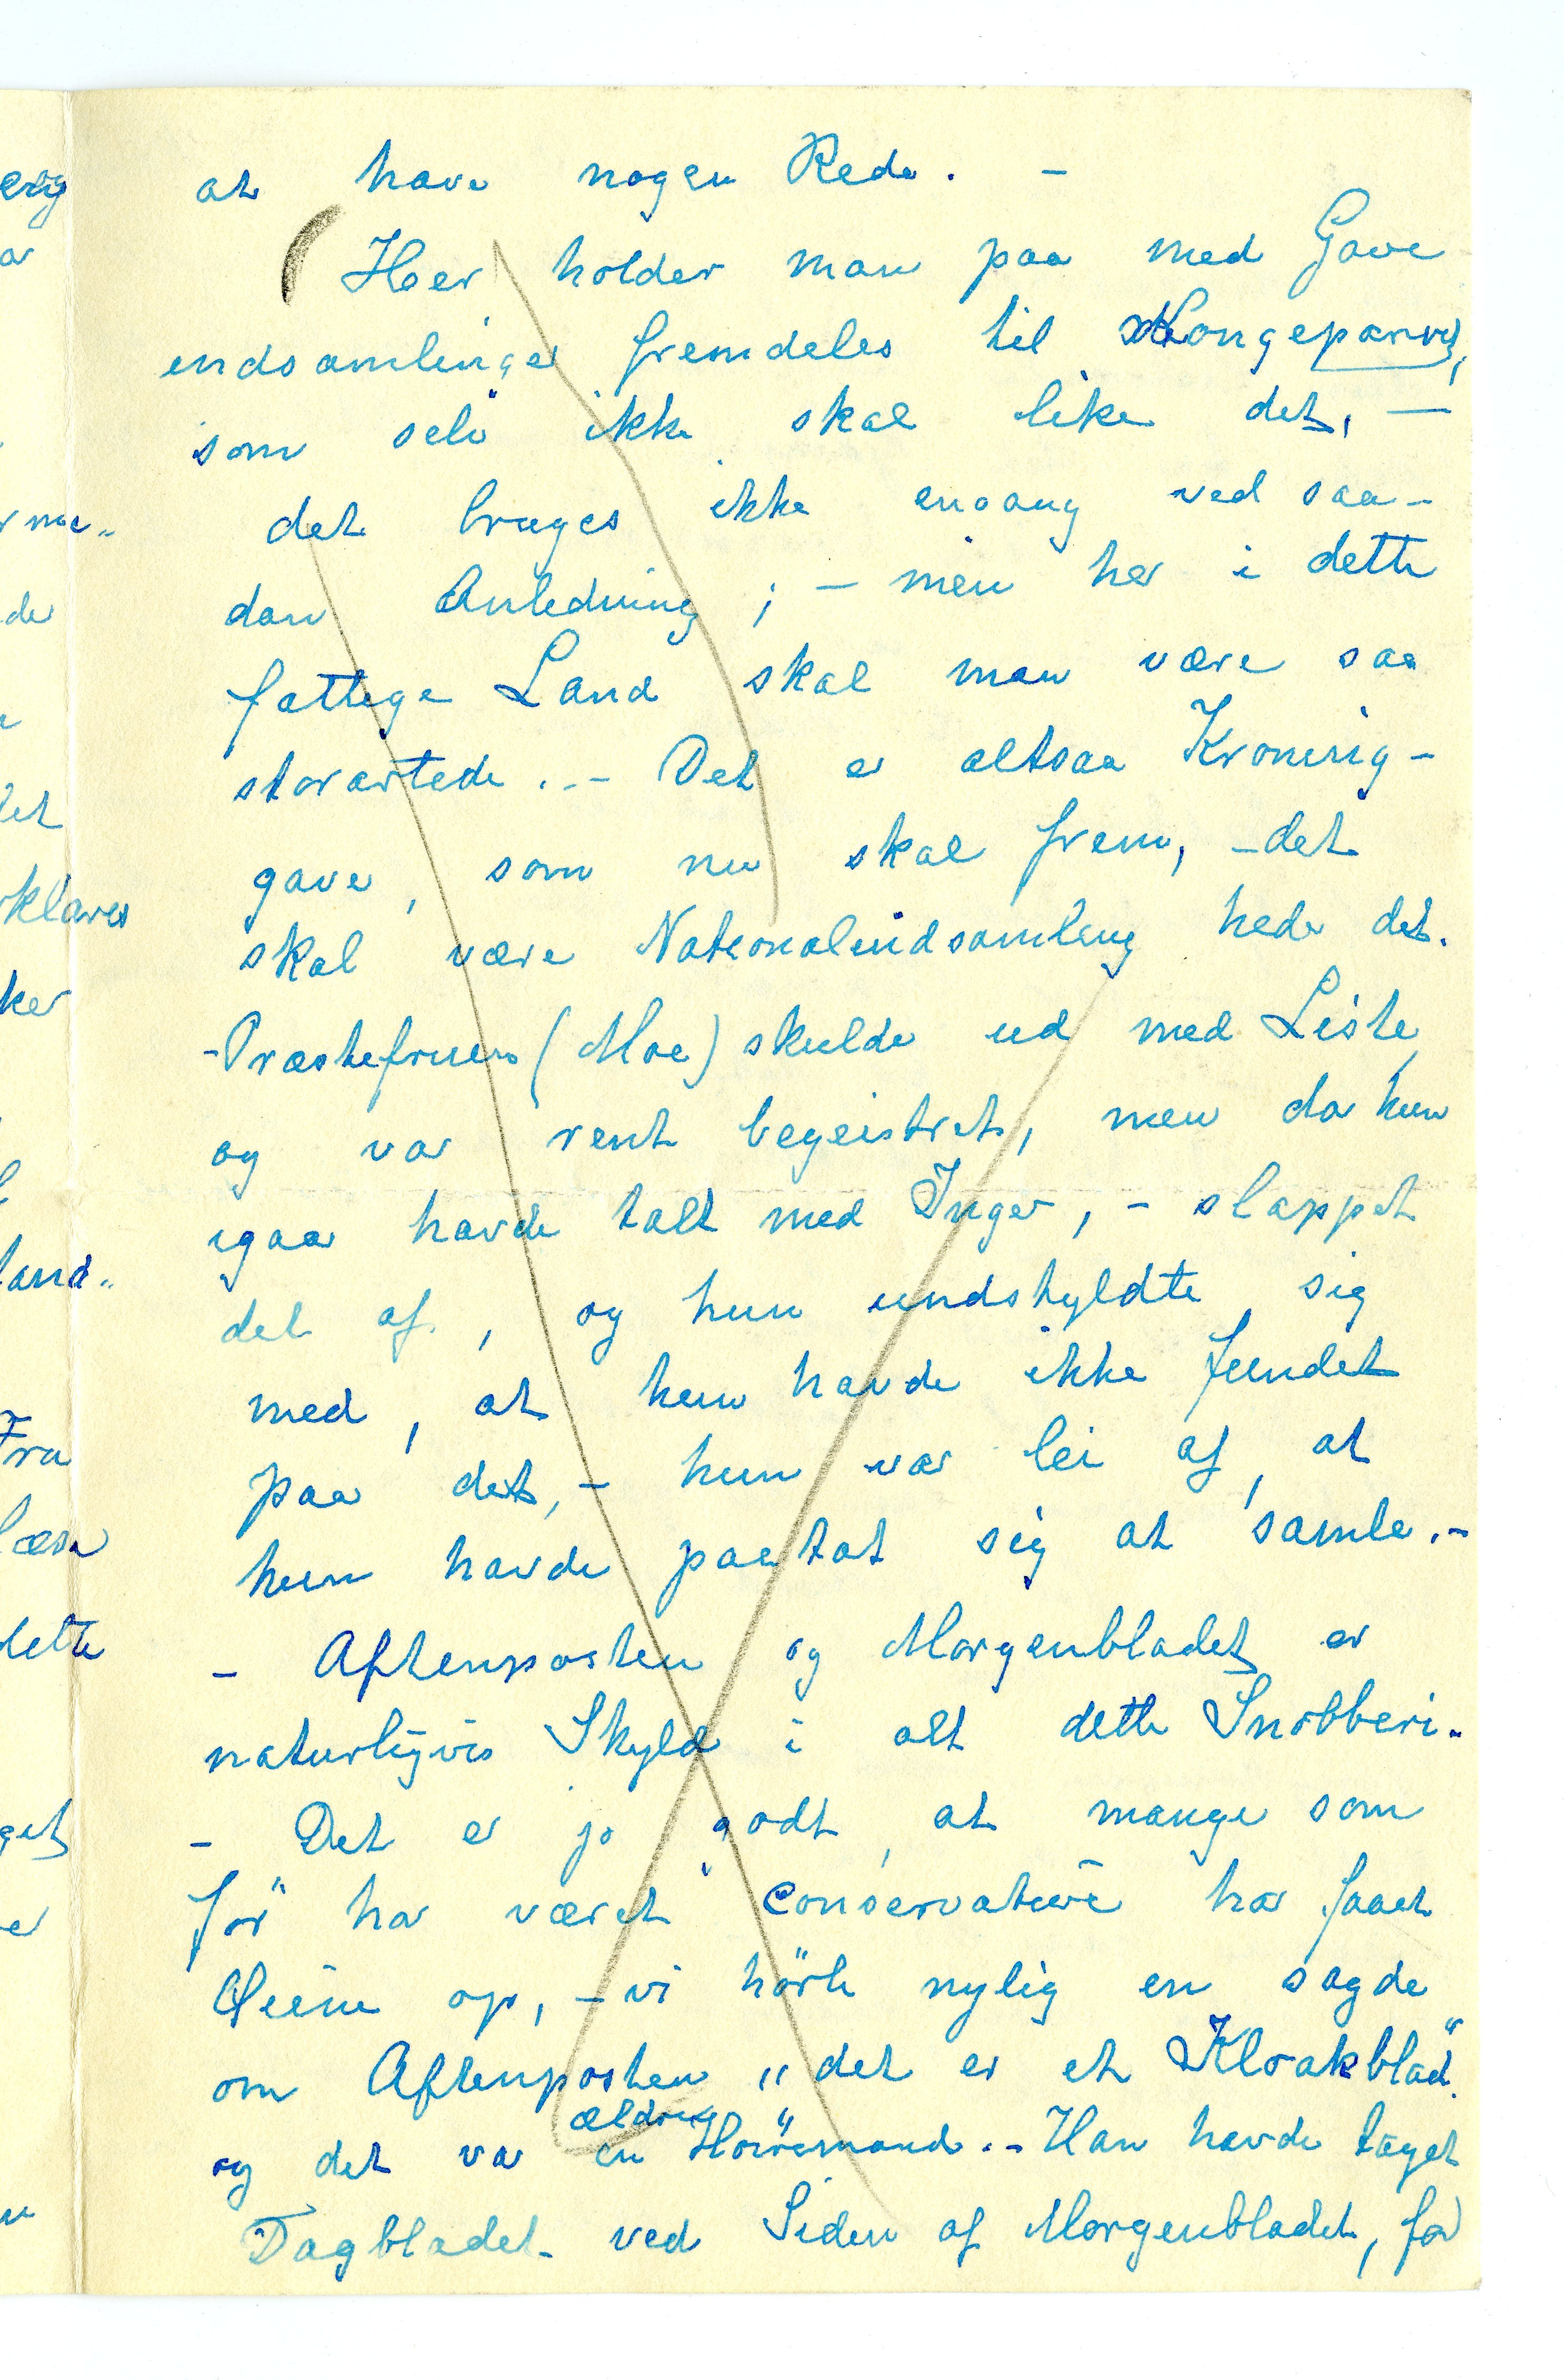 at have nogen Rede. -
Her holder man paa med Gave
indsamlinger fremdeles til Kongeparret,
som selv ikke skal like det, -
det bruges ikke engang ved saa-
dan Anledning ; - men her i dette
fattige Land skal man være saa
storartede . - Det er altsaa Kronings-
gave, som nu skal frem, - det
skal være Nationalindsamling heder det.
- Præstefruen (Moe) skulde ud med Liste,
og var rent begeistret, men da hun
igaar havde talt med Inger, - slappet
det af, og hun undskyldte sig
med, at hun havde ikke fundet
paa det, - hun var lei af, at
hun havde paatat sig at samle. -
- Aftenposten og Morgenbladet er
naturligvis Skyld i alt dette Snobberi.
- Det er jo godt, at mange som
før har været conservative har faaet
Øiene op, - vi hørte nylig en sagde
om Aftenposten „det er et Kloakblad"
ældre
og det var en Høiremand. - Han havde taget
Dagbladet ved Siden af Morgenbladet, for
erig
ar
de
det
rklares
ker
land..
Fra
læse
dette
get
er